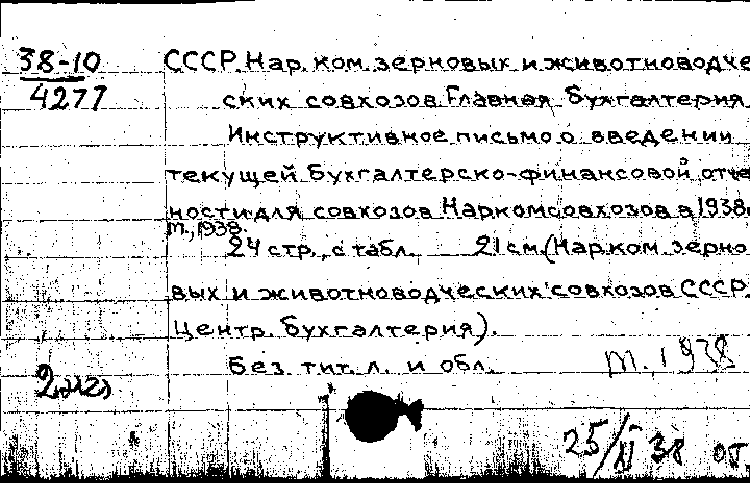 38-10
4277
СССР. Нар. ком. зерновых и животноводче
ских совхозов. Главная бухгалтерия
Инструктивное письмо о введении
текущей бухгалтерско-финансовой отче
ности для совхозов Наркомсовхозов в 1938г.
М., 1938.
24 стр., с табл. 21 см. (Нар. ком. зерно
вых и животноводческих совхозов СССР.
Центр. бухгалтерия).
Без тит. л. и обл. М., 1938
2 экз
25/XI 38